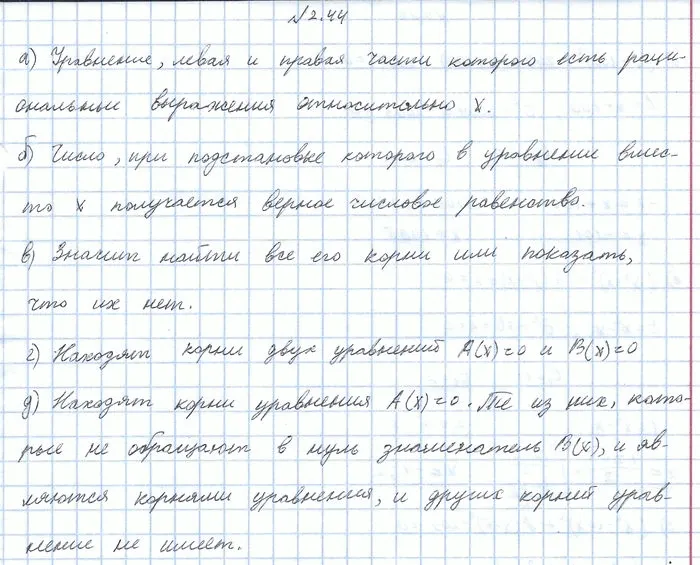 №2.44
а) Уравнение, левая и правая части которого есть раци-
ональные выражения относительно x.
б) Число, при подстановке которого в уравнении вмес-
то x получается верное числовое равенство.
в) Значит найти все его корни или показать,
что их нет.
г) Находят корни двух уравнений A(x)=0 и B(x)=0
д) Находят корни уравнения A(x)=0. Те из них, кото-
рые не обращают в нуль знаменатель B(x), и яв-
ляются корнями уравнения, и других корней урав-
нение не имеет.